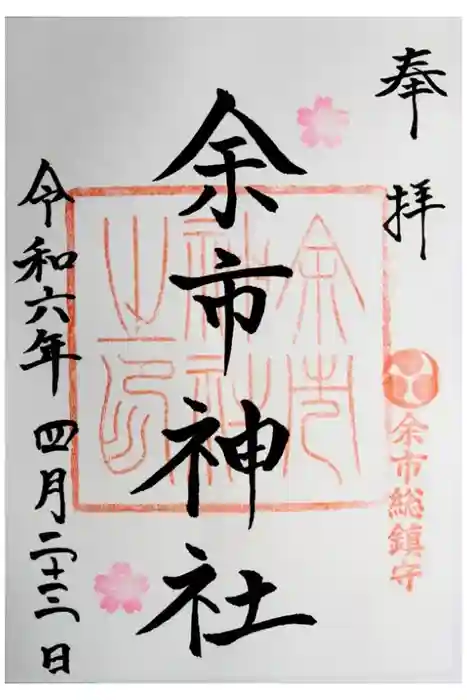 奉拝
余市総鎮守
余市神社
余市神社之印
令和六年 四月二十三日